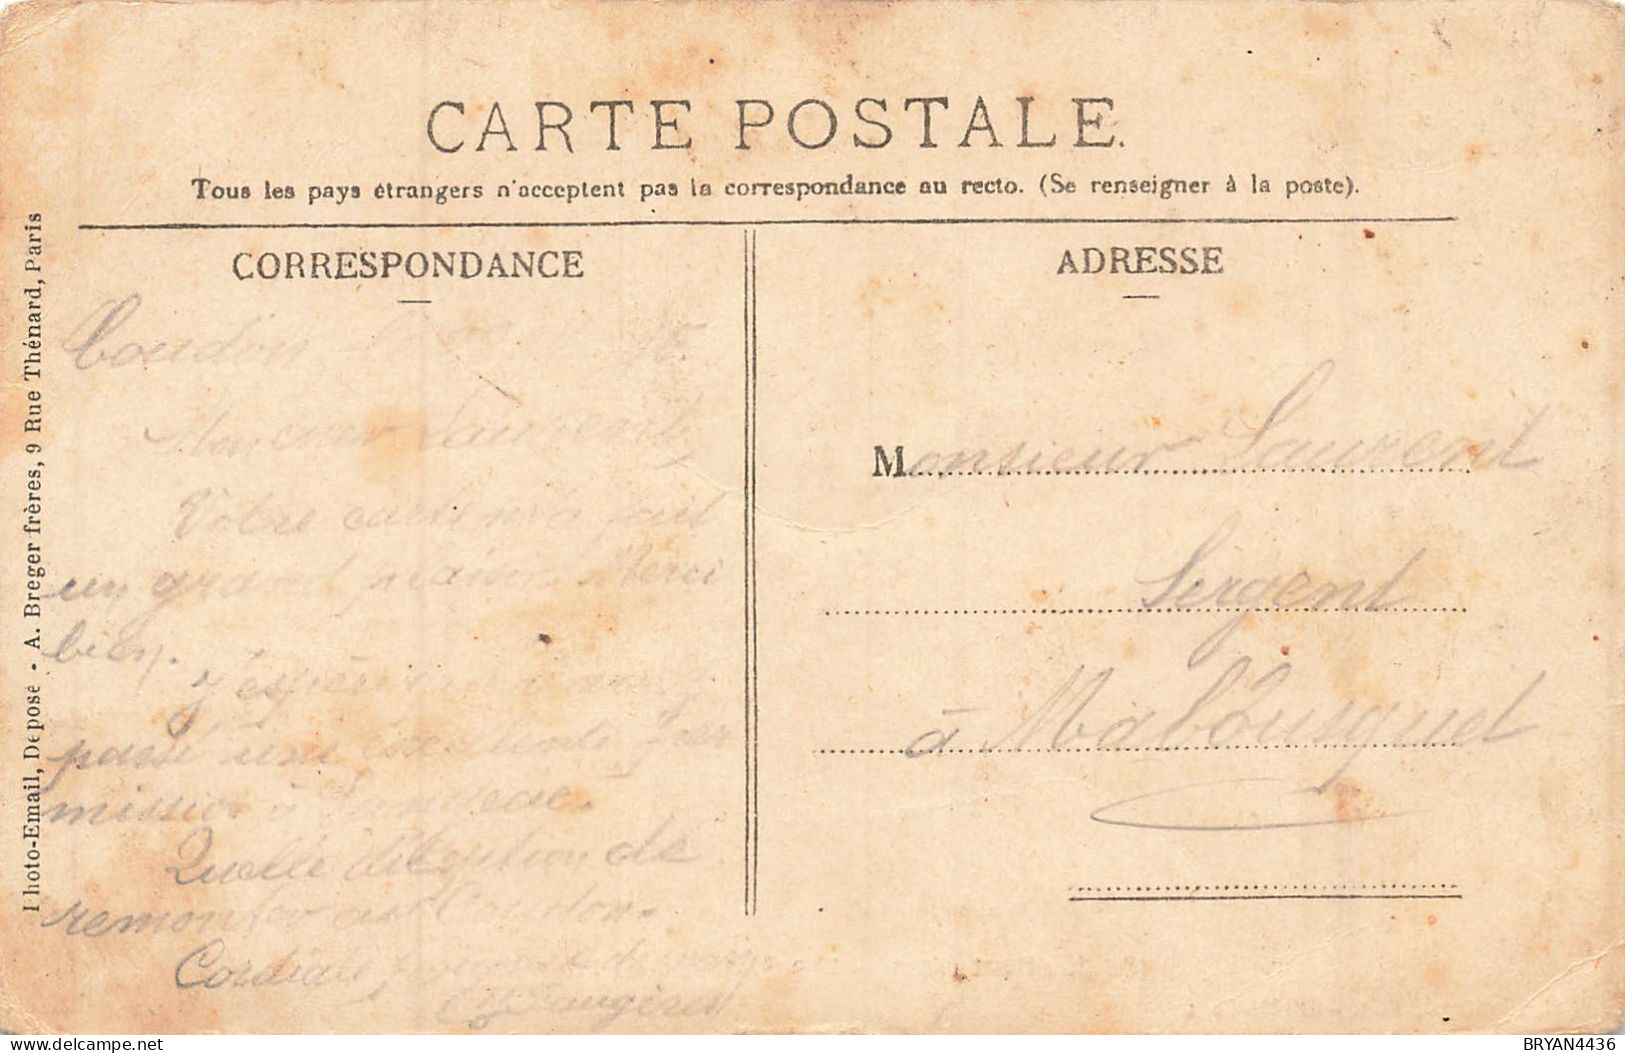 CARTE POSTALE.
Tous les pays étrangers n'acceptent pas la correspondance au recto. (Se renseigner à la poste).
CORRESPONDANCE
Coudon
Mon cher Laurent
Votre carte m'a fait
un grand plaisir. Merci
bien.
J'espère que
passé une excellente per
mission à
Quelle de
remonter au Coudon.
Cordiale poignée de
ADRESSE
Monsieur Laurent
Sergent
à Malbousquet
Photo-Email, Déposé - A. Breger frères, 9 Rue Thénard, Paris
delcampe.net
BRYAN4436